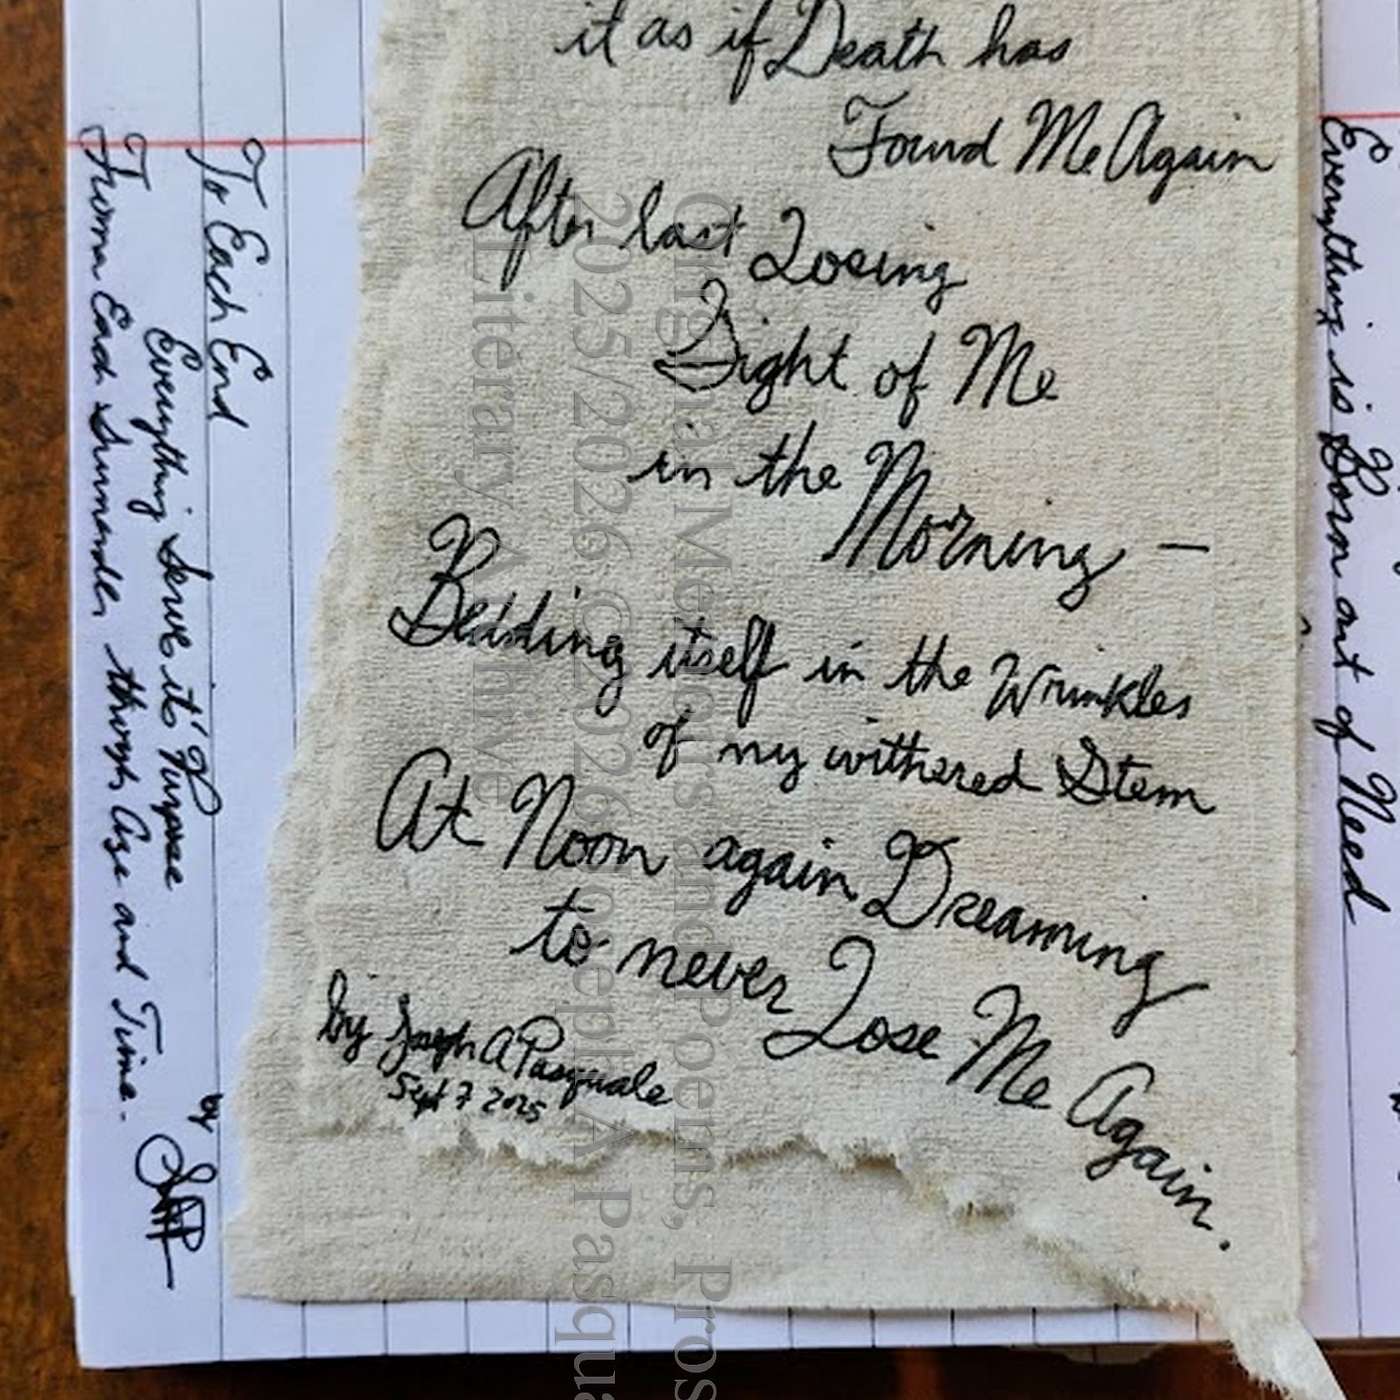 it as if Death has
Found Me Again
After last Losing
Sight of Me
in the Morning —
Bedding itself in the Wrinkles
of my withered Stem
At Noon again Dreaming
to never Lose Me Again.
by Joseph A Pasquale
Sept 7 2025
To Each End
Everything Serve it' Purpose
From Each Surrender through Age and Time.
by
Everything is Born out of Need
Original Memoirs and Poems, Pros
2025/2026 ©2026 Joseph A Pasqua
Literary Archive